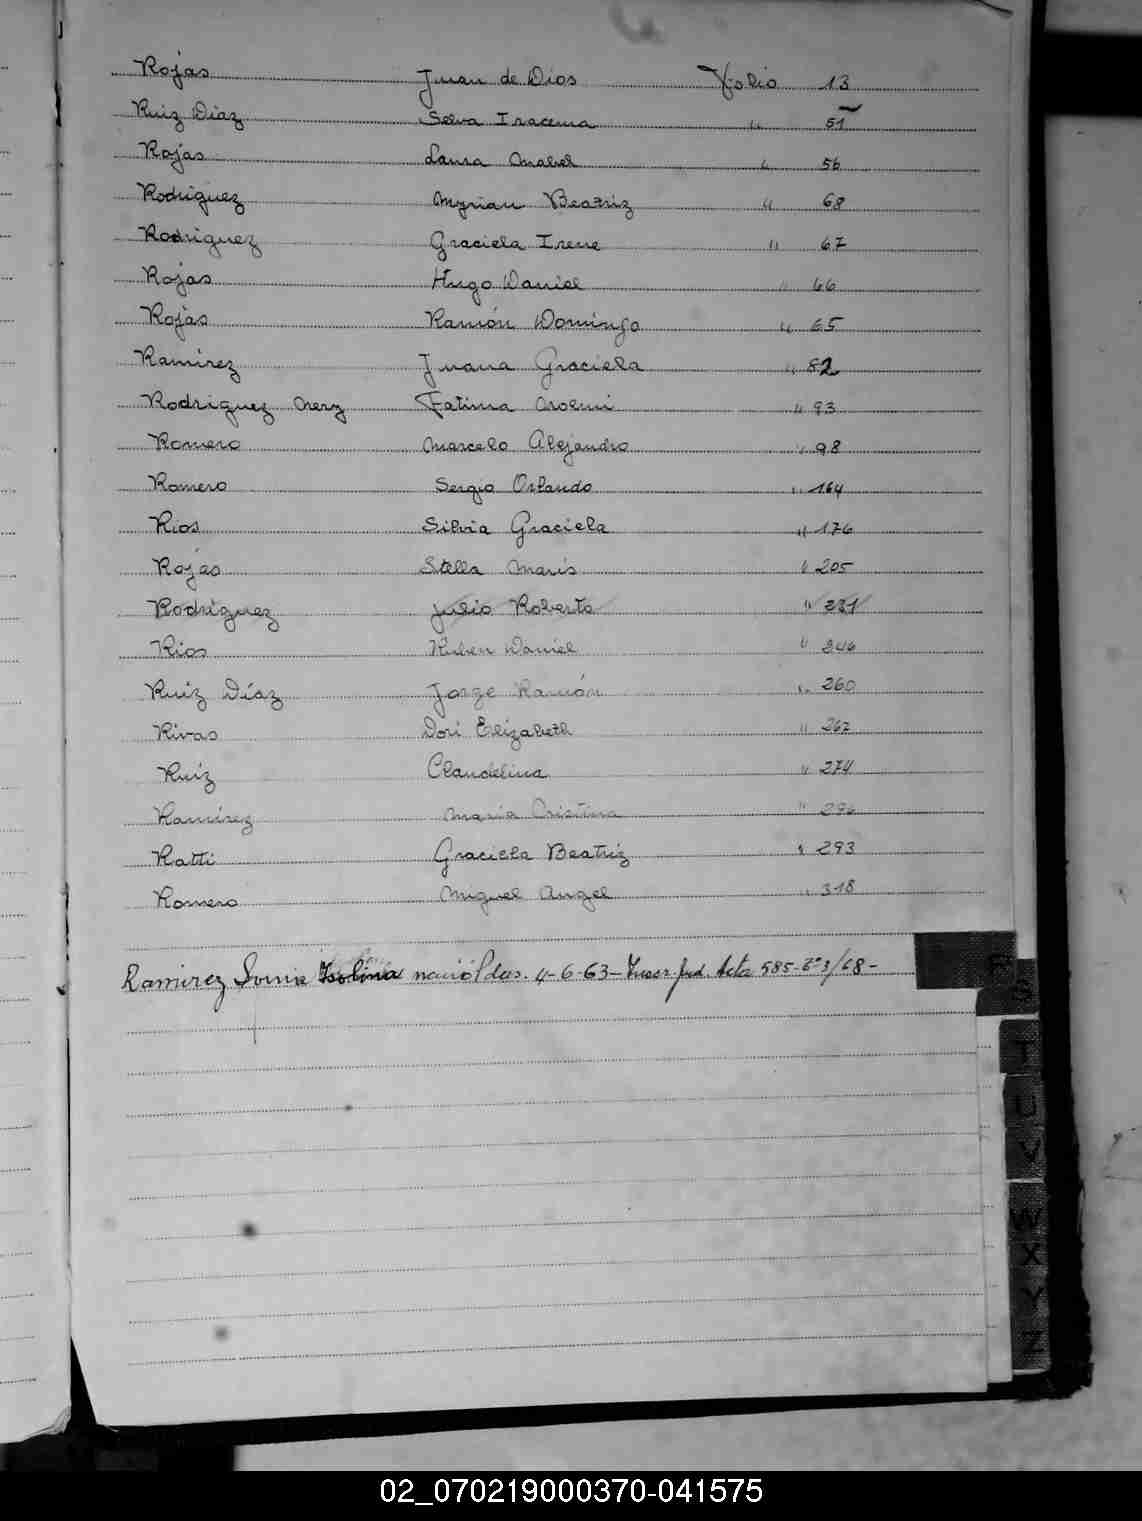 Rojas Juan de Dios Folio 13
Ruiz Diaz Selva Iracema " 51
Rojas Laura Mabel " 56
Rodriguez Myrian Beatriz " 68
Rodriguez Graciela Irene " 67
Rojas Hugo Daniel " 66
Rojas Ramón Domingo " 65
Ramirez Juana Graciela " 82
Rodriguez Nery Fatima Noemi " 93
Romero Marcelo Alejandro " 98
Romero Sergio Orlando " 164
Rios Silvia Graciela " 176
Rojas Stella Maris " 205
Rodriguez Julio Roberto " 231
Rios Ruben Daniel " 246
Ruiz Díaz Jorge Ramón " 260
Rivas Dori Elizabeth " 267
Ruiz Claudelina " 274
Ramírez Maria Cristina " 296
Ratti Graciela Beatriz " 293
Romero Miguel Angel " 318
Ramirez Sonia Isolina nació 4-6-63- Jud. Acta 585- 3/68-
R
S
T
U
V
W
X
Y
Z
02_070219000370-041575